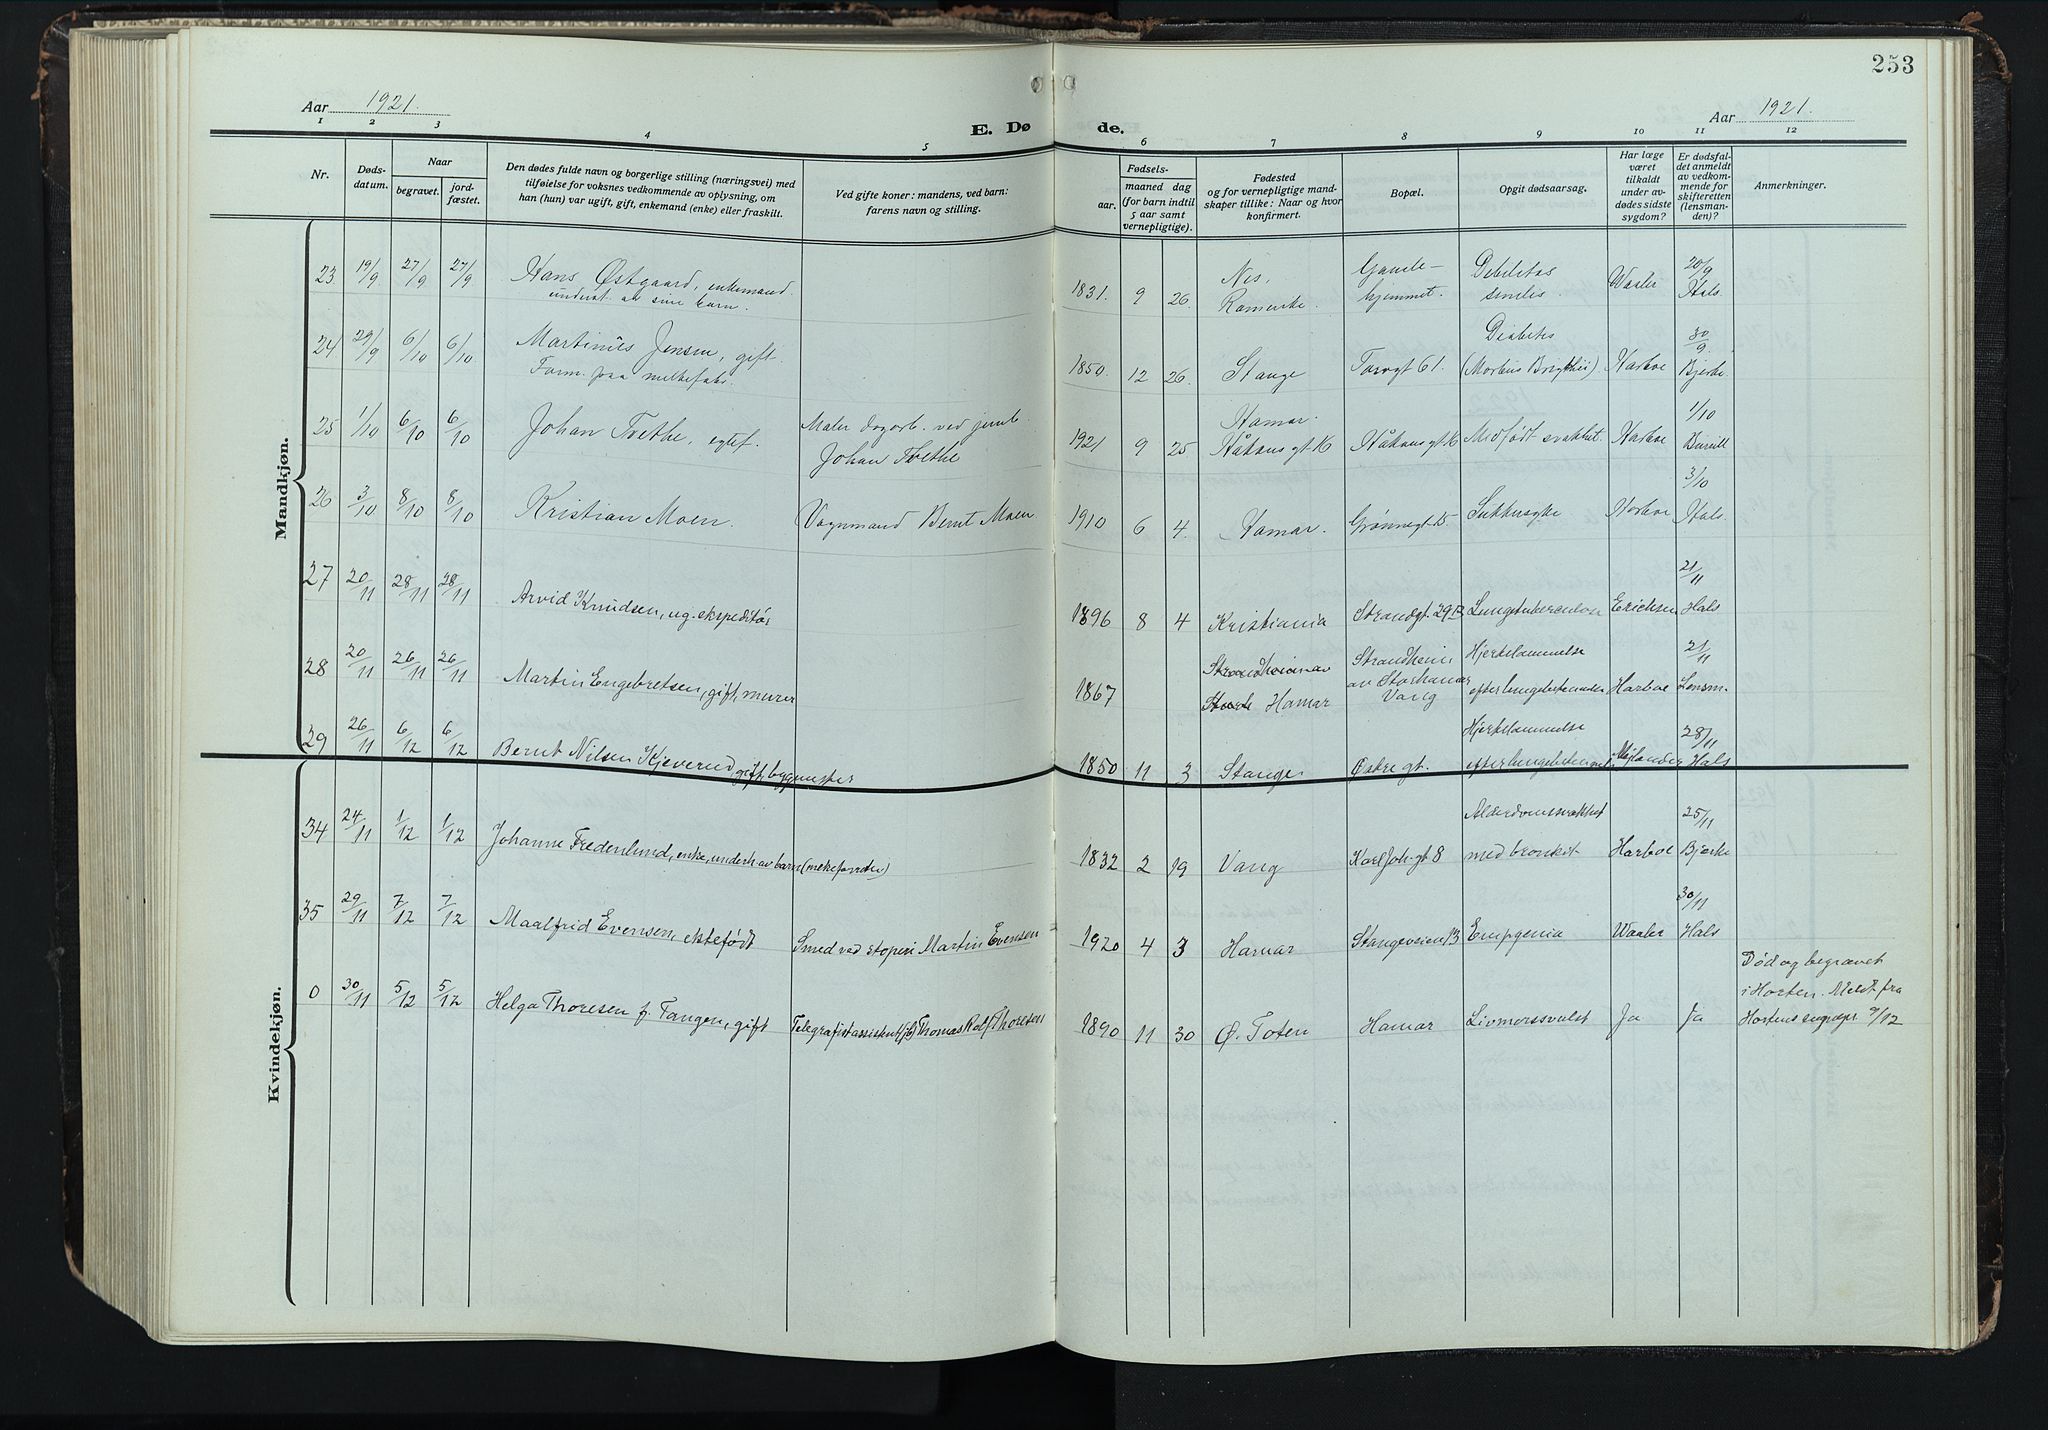 253
Aar 1921.
Aar 1921.
E. Dø
de.
1 2 3 4 5 6 7 8 9 10 11 12
Nr.
Døds-
datum.
Naar
begravet.
jord-
fæstet.
Den dødes fulde navn og borgerlige stilling (næringsvei) med
tilføielse for voksnes vedkommende av oplysning, om
han (hun) var ugift, gift, enkemand (enke) eller fraskilt.
Ved gifte koner: mandens, ved barn:
farens navn og stilling.
Fødsels-
aar.
maaned dag
(for barn indtil
5 aar samt
vernepligtige).
Fødested
og for vernepligtige mand-
skaper tillike: Naar og hvor
konfirmert.
Bopæl.
Opgit dødsaarsag.
Har læge
været
tilkaldt
under av-
dødes sidste
sygdom?
Er dødsfal-
det anmeldt
av vedkom-
mende for
skifteretten
(lensman-
den)?
Anmerkninger.
Mandkjøn.
23 19/9 27/9 27/9 Hans Østgaard, enkemand.
underst. av sine barn.
1831. 9 26. Nes, Gamle- Debilitas Waaler 20/9
hjemmet. senilis. Hals.
24 29/9 6/10 6/10 Martinus Jensen, gift.
Form. paa melkefabr.
1850. 12 26. Stange Torvgt 61. Diabetes Harboe 30/9
(Morbus Brigthii) Bjerke
25 1/10 6/10 6/10 Johan Trethe, egtef. Maler dagarb. ved jernb.
Johan Trethe
1921 9 25 Hamar Håkonsgt 16 Medfødt svakhet. Harboe 1/10
Håkonsgt 16
26 3/10 8/10 8/10 Kristian Moen. Vognmand Bernt Moen
1910 6 4. Hamar. Grønnegt 15. Sukkersyke Harboe 3/10
Hals.
27 20/11 28/11 28/11 Arvid Knudsen, ug. ekspeditør
1896 8 4 Kristiania Strandgt. 29B Lungetuberculose Erichsen 21/11
Hals
28 20/11 26/11 26/11 Martin Engebretsen, gift, murer
1867 Hamar Strandheim Hjertelammelse Harboe 21/11
av Storhamar efter lungebetendelse Lensm.
Vang
29 26/11 6/12 6/12 Bernt Nilsen Kjeverud gift, bygmester
1850 11 3 Stange Østregt. Hjertelammelse Mejlænder 28/11
efter lungebetend. Hals
Kvindekjøn.
34 24/11 1/12 1/12 Johanne Fredenlund, enke, underh. av barn
1832 2 19 Vang Karl Joh. gt 8 Alderdomssvakhet Harboe 25/11
med bronkit Bjerke
35 29/11 7/12 7/12 Maalfrid Evensen, ektefødt Smed ved støperi Martin Evensen
1920 4 3 Hamar Stangeveien 13 Empyemia Waaler 30/11
Hals
0 30/11 5/12 5/12 Helga Thoresen f. Tangen, gift Telegrafistassistent Thomas Rolf Thoresen
1890 11 30 Ø. Toten Hamar Livmorssvulst Ja Ja
Død og begravet
i Horten. Meldt fra
Hortens sognepr. 9/12